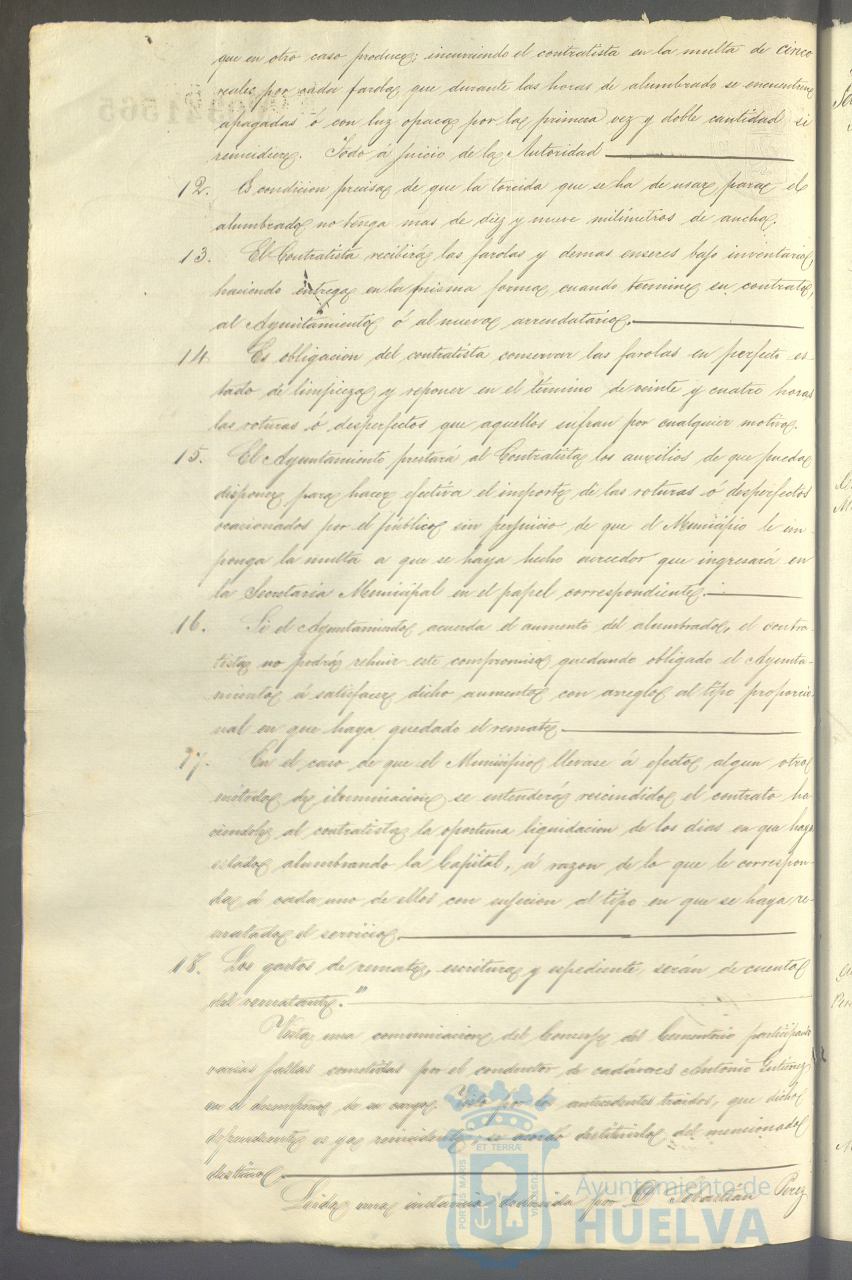 que en otro caso produce; incurriendo el contratista en la multa de cinco
reales por cada farola que durante las horas de alumbrado se encuentren
apagadas ó con luz opaca por la primera vez y doble cantidad si
reincidiere. Todo á juicio de la Autoridad
12. Es condicion precisa de que la torcida que se ha de usar para el
alumbrado no tenga mas de diez y nueve milimetros de ancho.
13. El Contratista recibirá las farolas y demas enseres bajo inventario,
haciendo entrega en la misma forma cuando termine su contrato,
al Ayuntamiento ó al nuevo arrendatario.
14 Es obligacion del contratista conservar las farolas en perfecto es-
tado de limpieza y reponer en el término de veinte y cuatro horas
las roturas ó desperfectos que aquellos sufran por cualquier motivo.
15. El Ayuntamiento prestará al Contratista los auxilios de que pueda
disponer para hacer efectiva el importe de las roturas ó desperfectos
ocasionados por el público sin perjuicio de que el Municipio le im-
ponga la multa a que se haya hecho acreedor que ingresará en
la Secretaria Municipal en el papel correspondiente.
16. Si el Ayuntamiento acuerda el aumento del alumbrado, el contra-
tista no podrá rehuir este compromiso quedando obligado el Ayunta-
miento á satisfacer dicho aumento con arreglo al tipo proporcio-
nal en que haya quedado el remate
17. En el caso de que el Municipio llevase á efecto algun otro
método de iluminacion se entenderá rescindido el contrato ha-
ciendole al contratista la oportuna liquidacion de los dias en que haya
estado alumbrando la Capital, á razon de lo que le correspon-
da á cada uno de ellos con sujecion al tipo en que se haya re-
matado el servicio.
18. Los gastos de remate, escritura y espediente serán de cuenta
del rematante."
Vista una comunicacion del Conserje del Cementerio participando
varias faltas cometidas por el conductor de cadáveres Antonio Gutierrez
en el desempeño de su cargo. Visto por los antecedentes traidos, que dicho
dependiente es ya reincidente, se acordó destituirlo del mencionado
destino.
Leida una instancia deducida por D. Sebastian Perez
PORTUS MARIS ET TERRÆ CUSTODIA
Ayuntamiento de
HUELVA